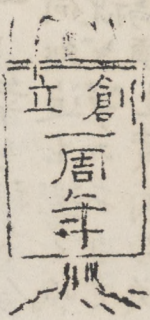 創立
一周年